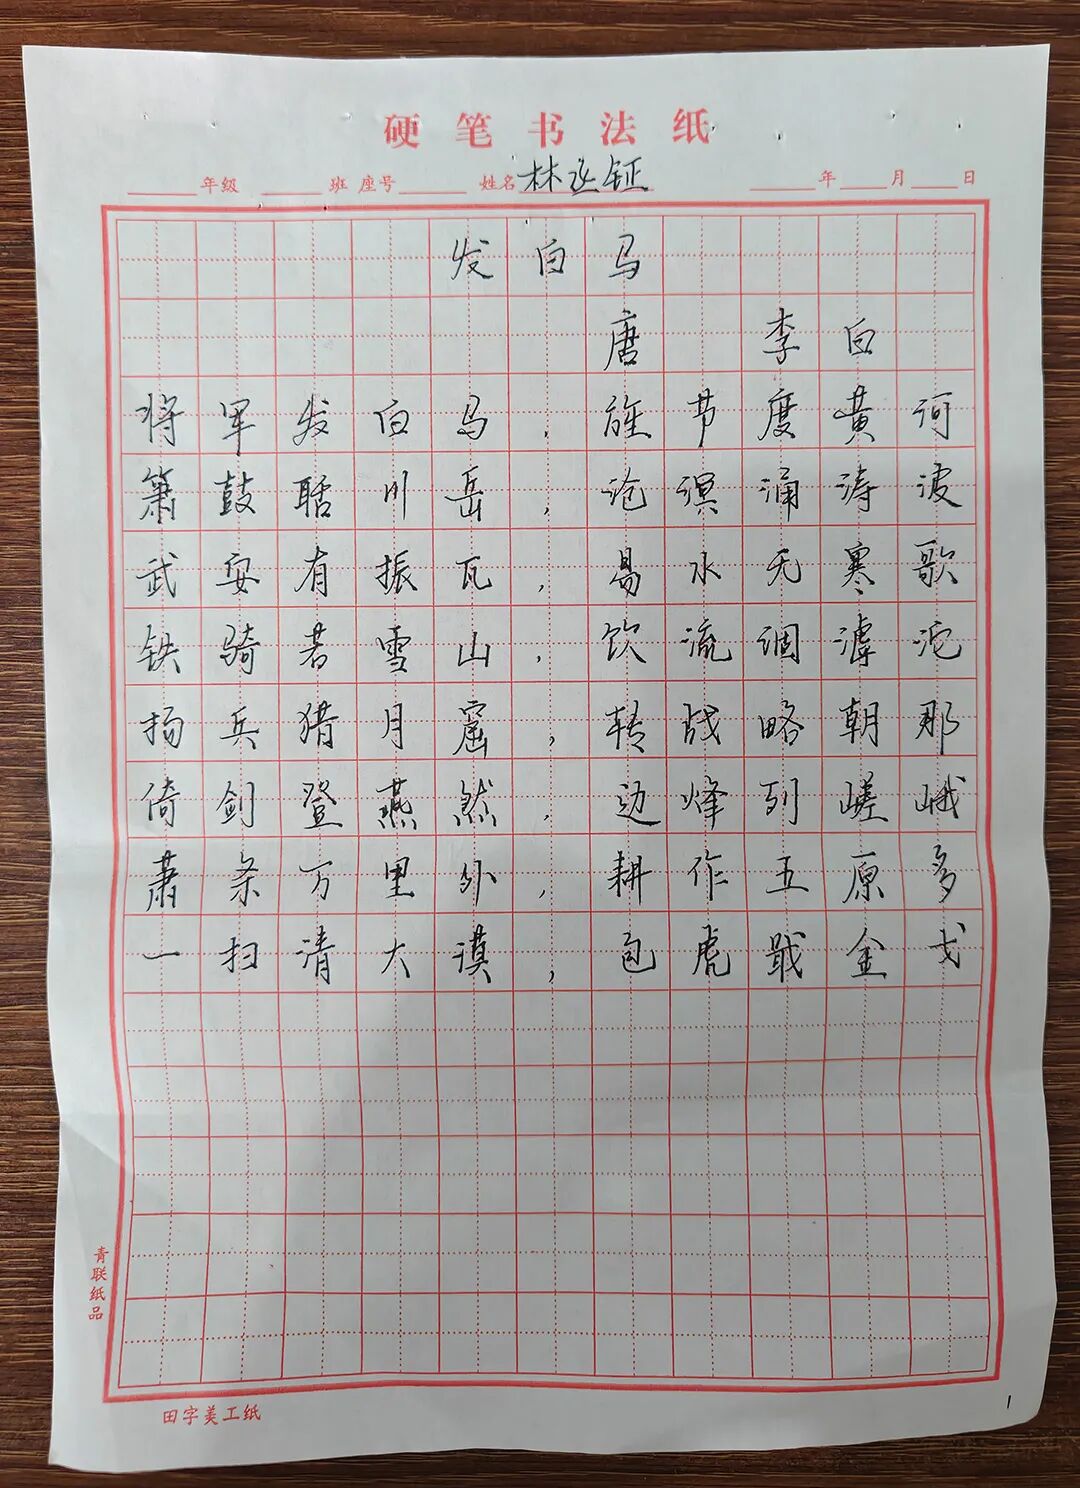 硬笔书法纸
年级 班 座号 姓名 林 钲 年 月 日
发白马
唐 李白
将军发白马，旌节度黄河
箫鼓聒川岳，沧溟涌涛波
武安有振瓦，易水无寒歌
铁骑若雪山，饮流涸滹沱
扬兵猎月窟，转战略朝那
倚剑登燕然，边烽列嵯峨
萧条万里外，耕作五原多
一扫清大漠，包虎戢金戈
青联纸品
田字美工纸
1